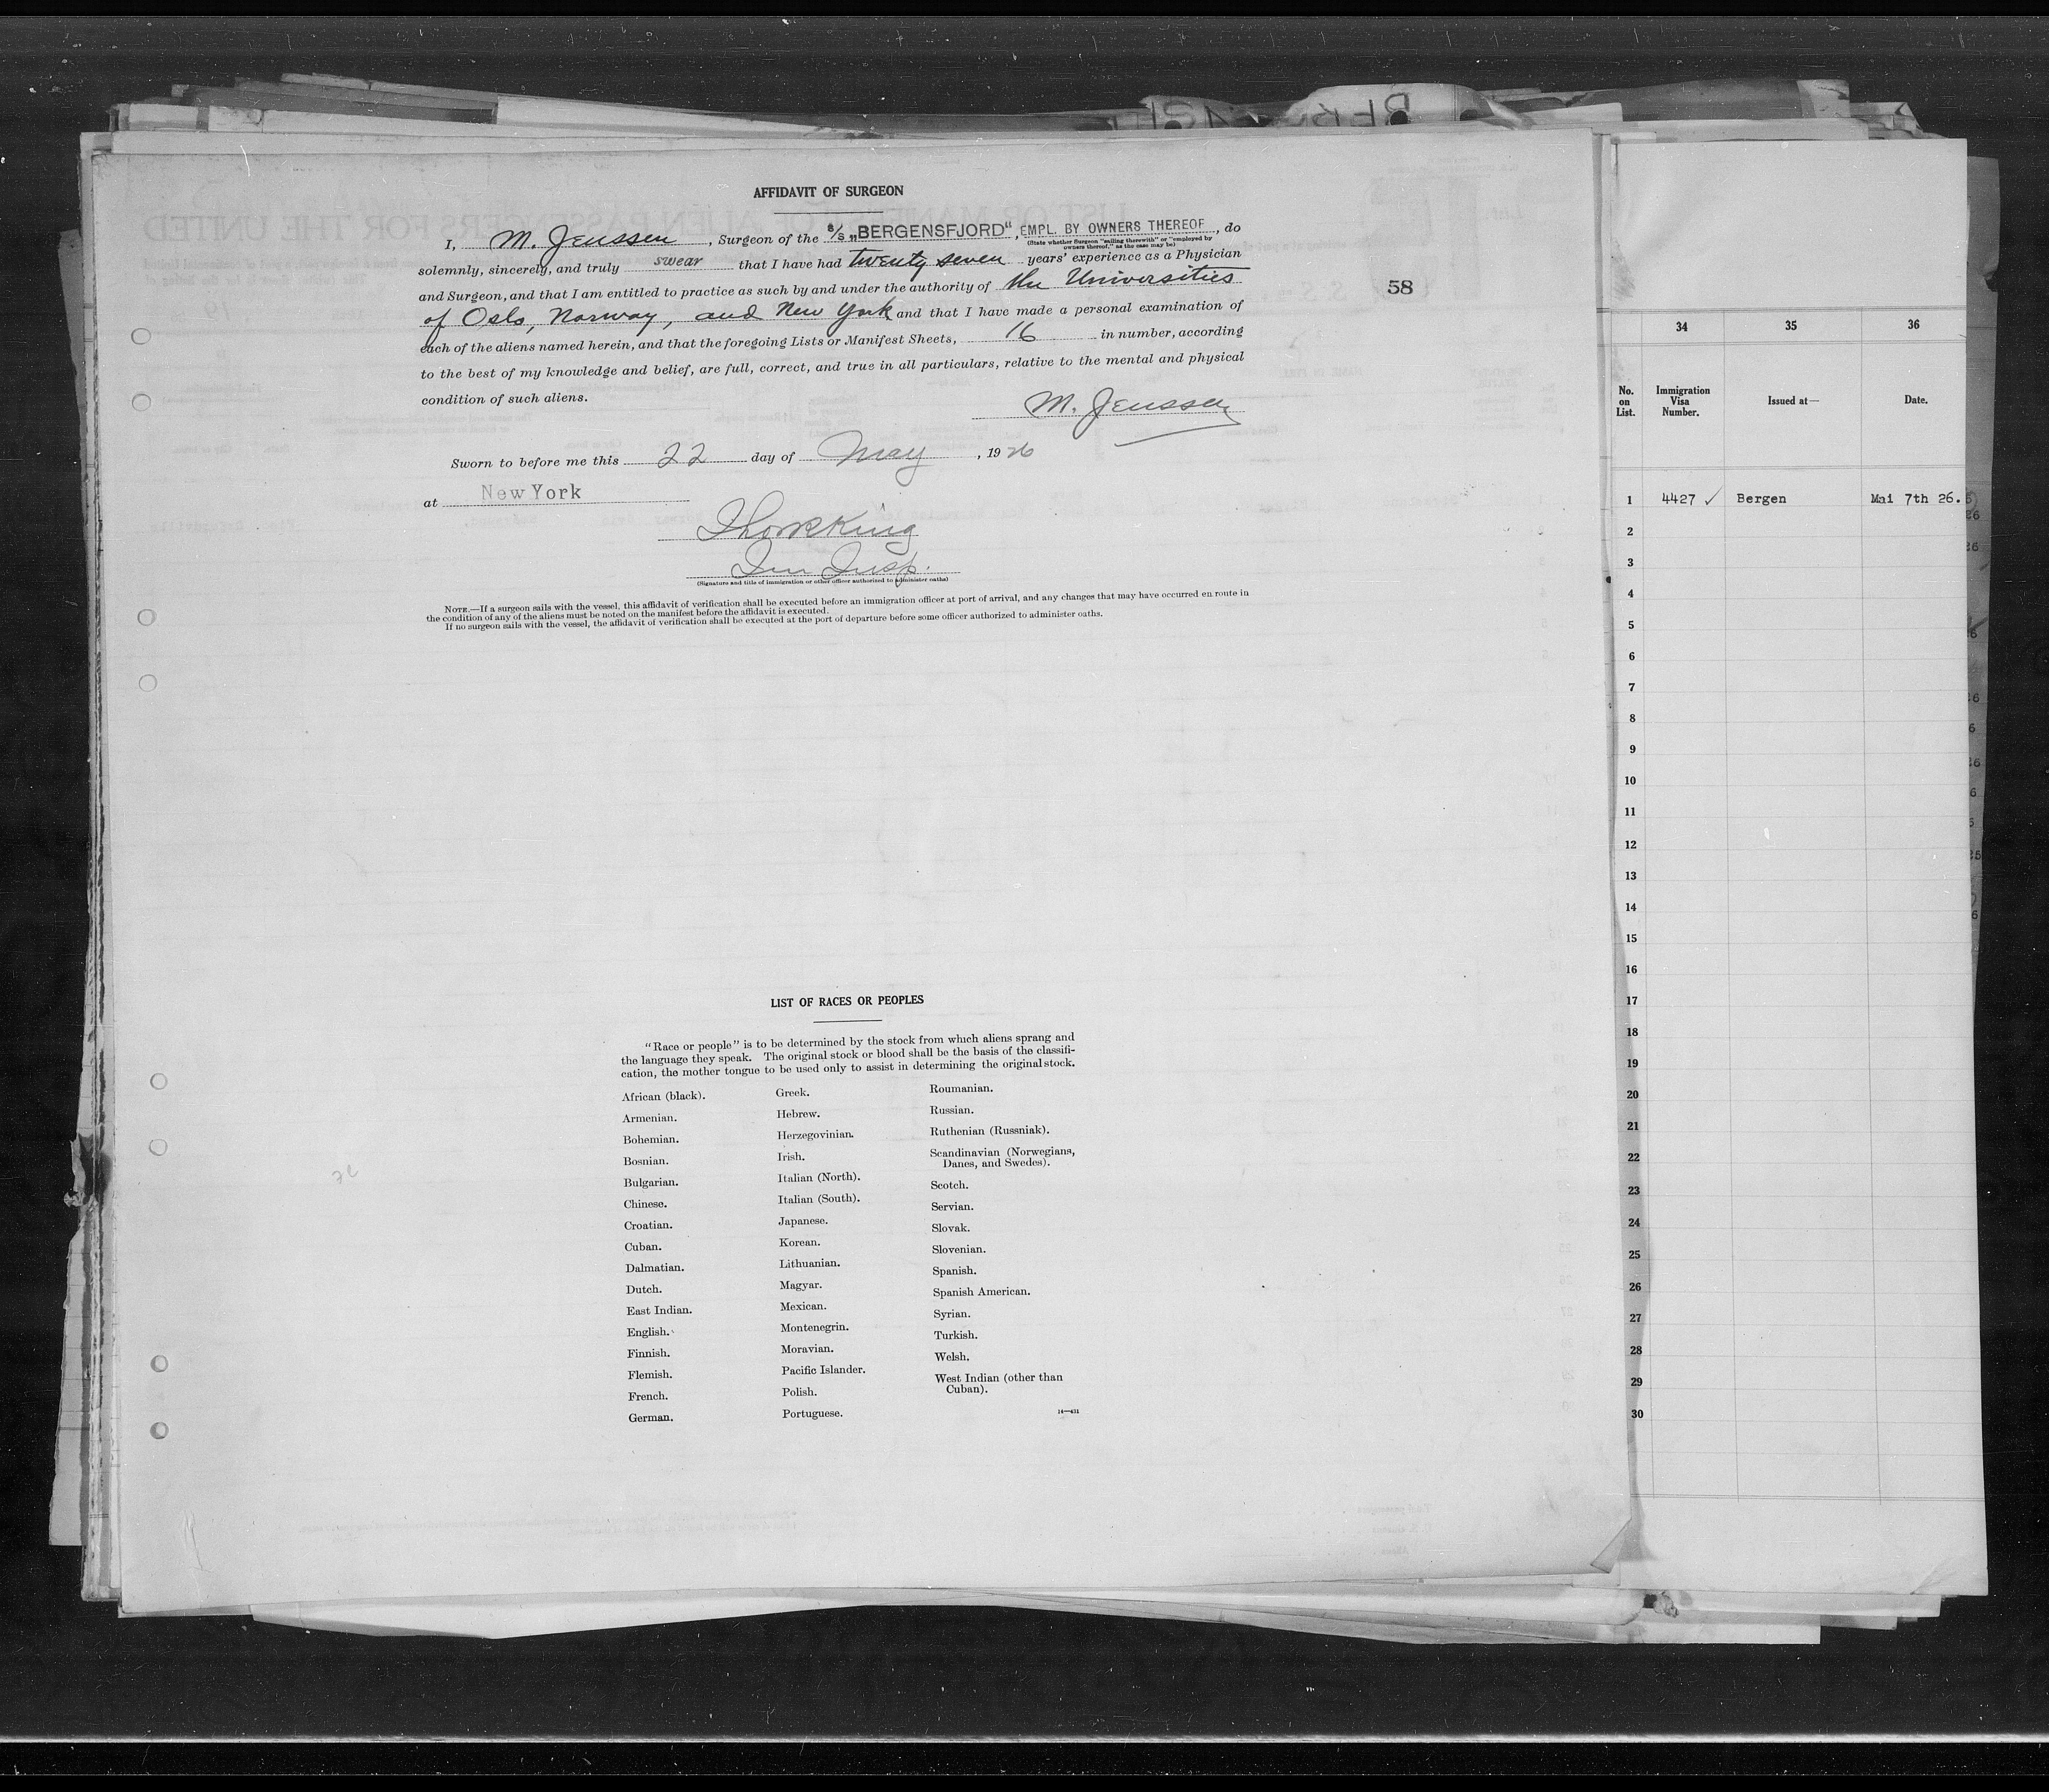 AFFIDAVIT OF SURGEON
I, M. Jenssen, Surgeon of the s/s „BERGENSFJORD", EMPL. BY OWNERS THEREOF, do
(State whether Surgeon "sailing therewith" or "employed by
owners thereof," as the case may be)
solemnly, sincerely, and truly swear that I have had twenty seven years' experience as a Physician
and Surgeon, and that I am entitled to practice as such by and under the authority of the Universities
of Oslo, Norway, and New York and that I have made a personal examination of
each of the aliens named herein, and that the foregoing Lists or Manifest Sheets, 16 in number, according
to the best of my knowledge and belief, are full, correct, and true in all particulars, relative to the mental and physical
condition of such aliens.
M. Jenssen
Sworn to before me this 22 day of May, 1926
at New York
Imm Insp.
(Signature and title of immigration or other officer authorized to administer oaths)
NOTE.—If a surgeon sails with the vessel, this affidavit of verification shall be executed before an immigration officer at port of arrival, and any changes that may have occurred en route in
the condition of any of the aliens must be noted on the manifest before the affidavit is executed.
If no surgeon sails with the vessel, the affidavit of verification shall be executed at the port of departure before some officer authorized to administer oaths.
58
LIST OF RACES OR PEOPLES
"Race or people" is to be determined by the stock from which aliens sprang and
the language they speak. The original stock or blood shall be the basis of the classifi-
cation, the mother tongue to be used only to assist in determining the original stock.
African (black).
Armenian.
Bohemian.
Bosnian.
Bulgarian.
Chinese.
Croatian.
Cuban.
Dalmatian.
Dutch.
East Indian.
English.
Finnish.
Flemish.
French.
German.
Greek.
Hebrew.
Herzegovinian.
Irish.
Italian (North).
Italian (South).
Japanese.
Korean.
Lithuanian.
Magyar.
Mexican.
Montenegrin.
Moravian.
Pacific Islander.
Polish.
Portuguese.
Roumanian.
Russian.
Ruthenian (Russniak).
Scandinavian (Norwegians,
Danes, and Swedes).
Scotch.
Servian.
Slovak.
Slovenian.
Spanish.
Spanish American.
Syrian.
Turkish.
Welsh.
West Indian (other than
Cuban).
14—431
34 35 36
No. on List. Immigration Visa Number. Issued at— Date.
1 4427 ✓ Bergen Mai 7th 26.
2
3
4
5
6
7
8
9
10
11
12
13
14
15
16
17
18
19
20
21
22
23
24
25
26
27
28
29
30